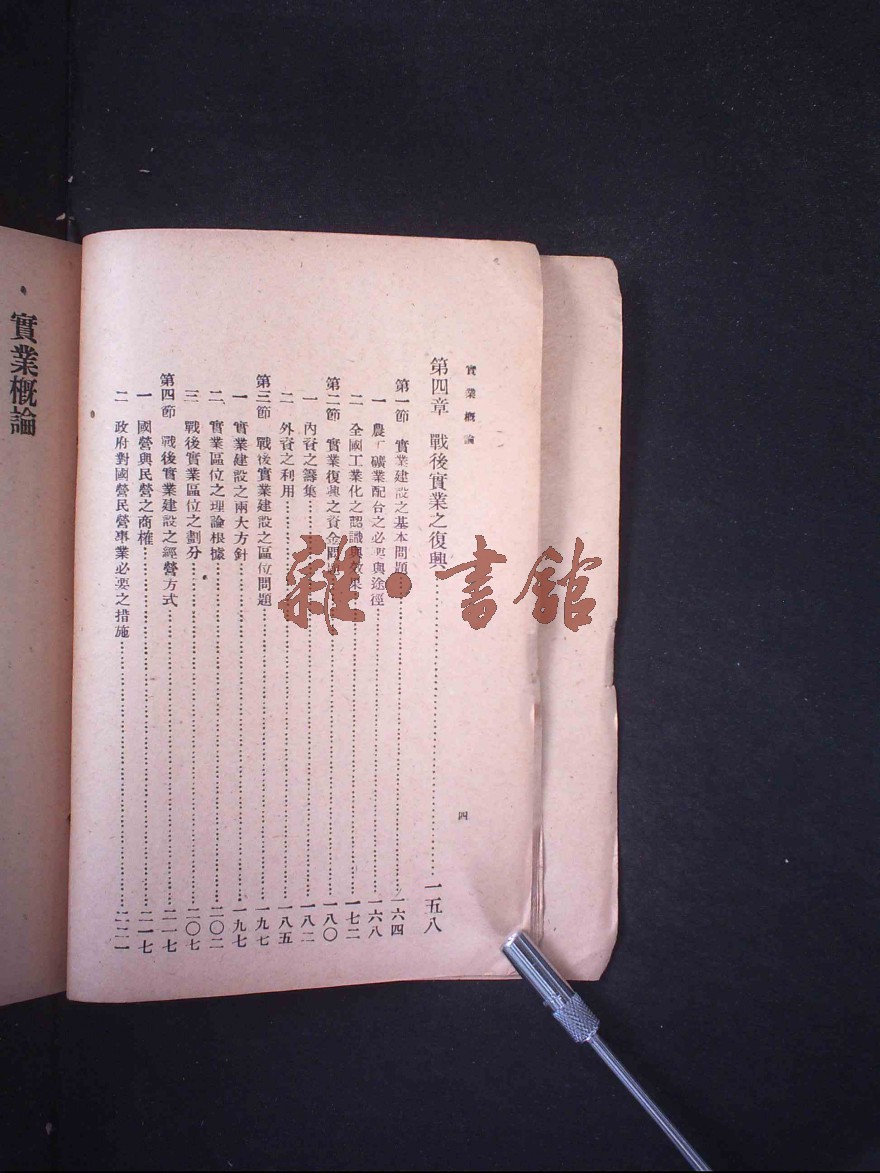 實業概論
四
第四章　戰後實業之復興……一五八
第一節　實業建設之基本問題……一六四
一　農工礦業配合之必要與途徑……一六八
二　全國工業化之認識與效果……一七二
第二節　實業復興之資金問題……一八〇
一　內資之籌集……一八二
二　外資之利用……一八五
第三節　戰後實業建設之區位問題……一九七
一　實業建設之兩大方針……一九七
二　實業區位之理論根據……二〇二
三　戰後實業區位之劃分……二〇七
第四節　戰後實業建設之經營方式……二一七
一　國營與民營之商榷……二一七
二　政府對國營民營事業必要之措施……二二一
實業概論
雜·書館